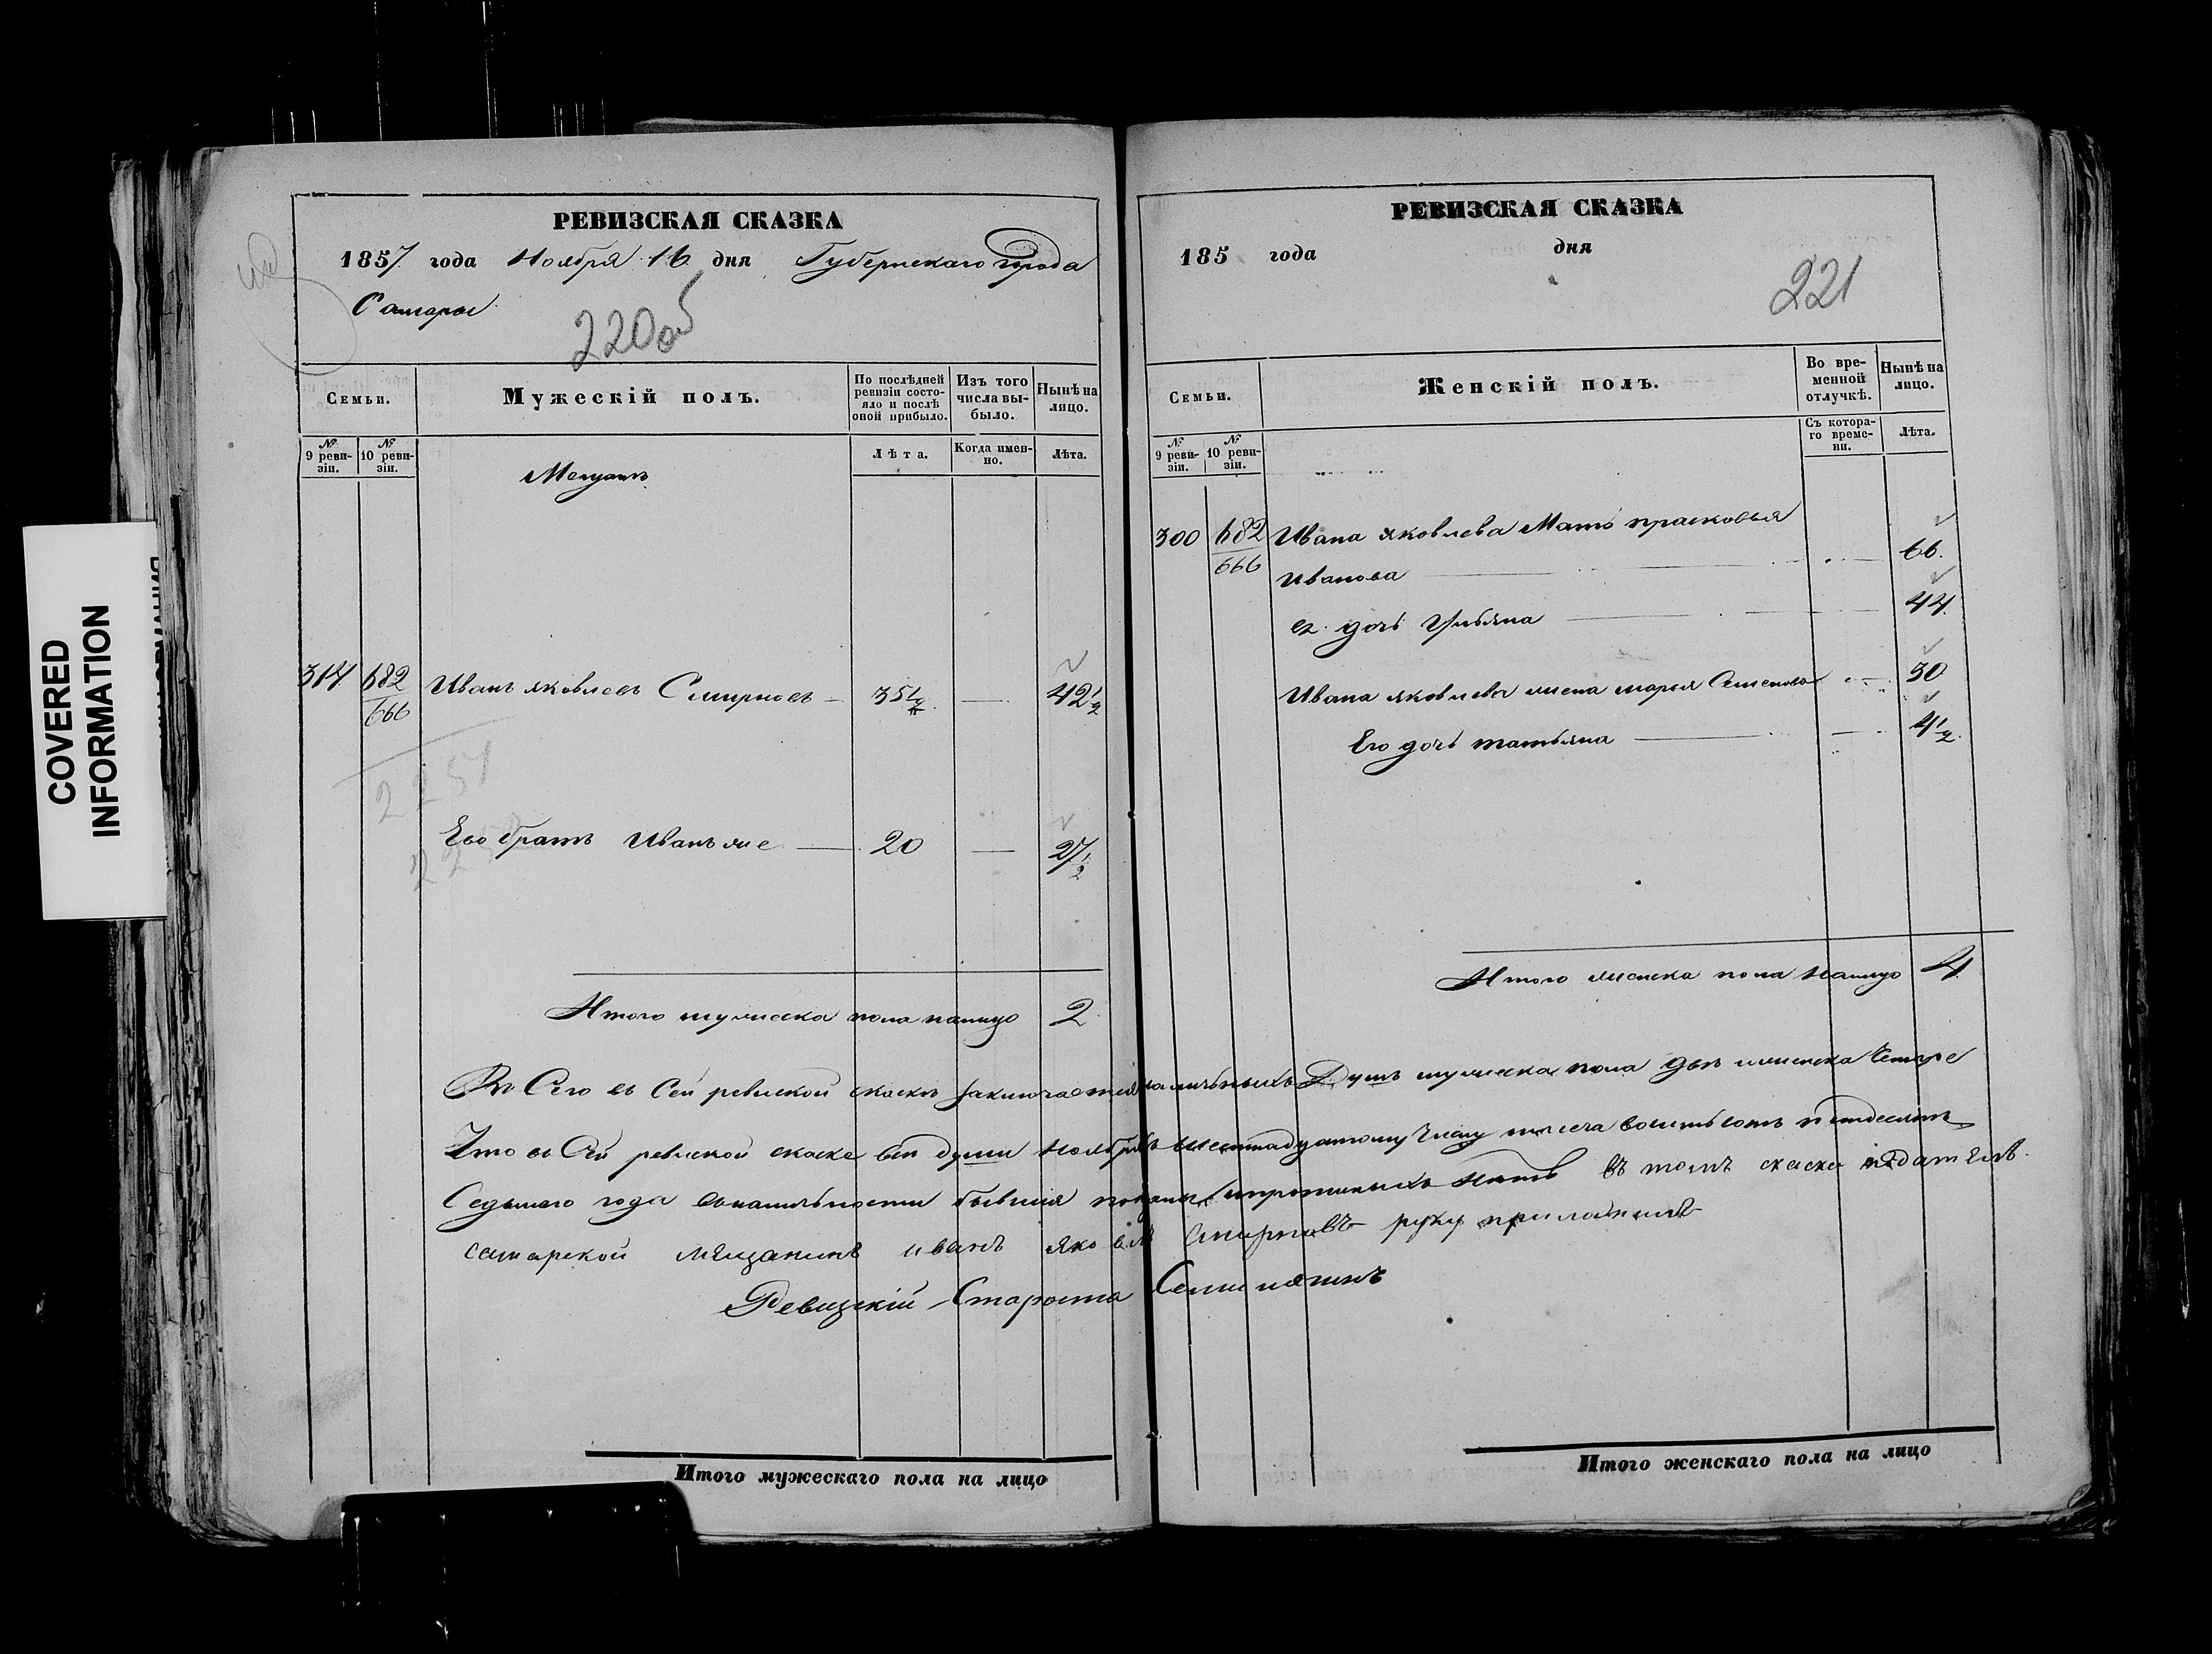 РЕВИЗСКАЯ СКАЗКА
1857 года Ноября 16 дня Губернскаго города
Самары
220 об
Семьи.
Мужескій полъ.
По послѣдней ревизіи состояло и послѣ оной прибыло.
Изъ того числа выбыло.
Нынѣ на лицо.
№ 9 ревизіи.
№ 10 ревизіи.
Лѣта.
Когда именно.
Лѣта.
Мещанъ
314 682 Иванъ яковлевъ Смирновъ — 35½ — 42½
666
2251
Его братъ Иванъ же — 20 — 27½
Итого мужеска пола налицо 2
РЕВИЗСКАЯ СКАЗКА
185 года дня
221
Семьи.
Женскій полъ.
Во временной отлучкѣ.
Нынѣ на лицо.
№ 9 ревизіи.
№ 10 ревизіи.
Съ котораго времени.
Лѣта.
300 682 Ивана яковлева Мать прасковья
666 Иванова — 66.
ея дочь Ульяна — 44.
Ивана яковлева жена марья Семенова — 30
Его дочь татьяна — 4½
Итого женска пола налицо 4
Всего въ Сей ревиской скаскѣ заключается наличныхъ Душъ мужеска пола двѣ и женска Четыре
Что въ Сей ревиской скаске всѣ души Ноября шестнадцатому Числу тысеча восемьсотъ пятдесятъ
Седьмого года вналичности бывшия показаны ипрописныхъ Нѣтъ въ томъ скаска податель
самарской мещанинъ иванъ яковлѣ смирновъ руку приложилъ
Ревизкій Староста
Итого мужескаго пола на лицо
Итого женскаго пола на лицо
COVERED
INFORMATION